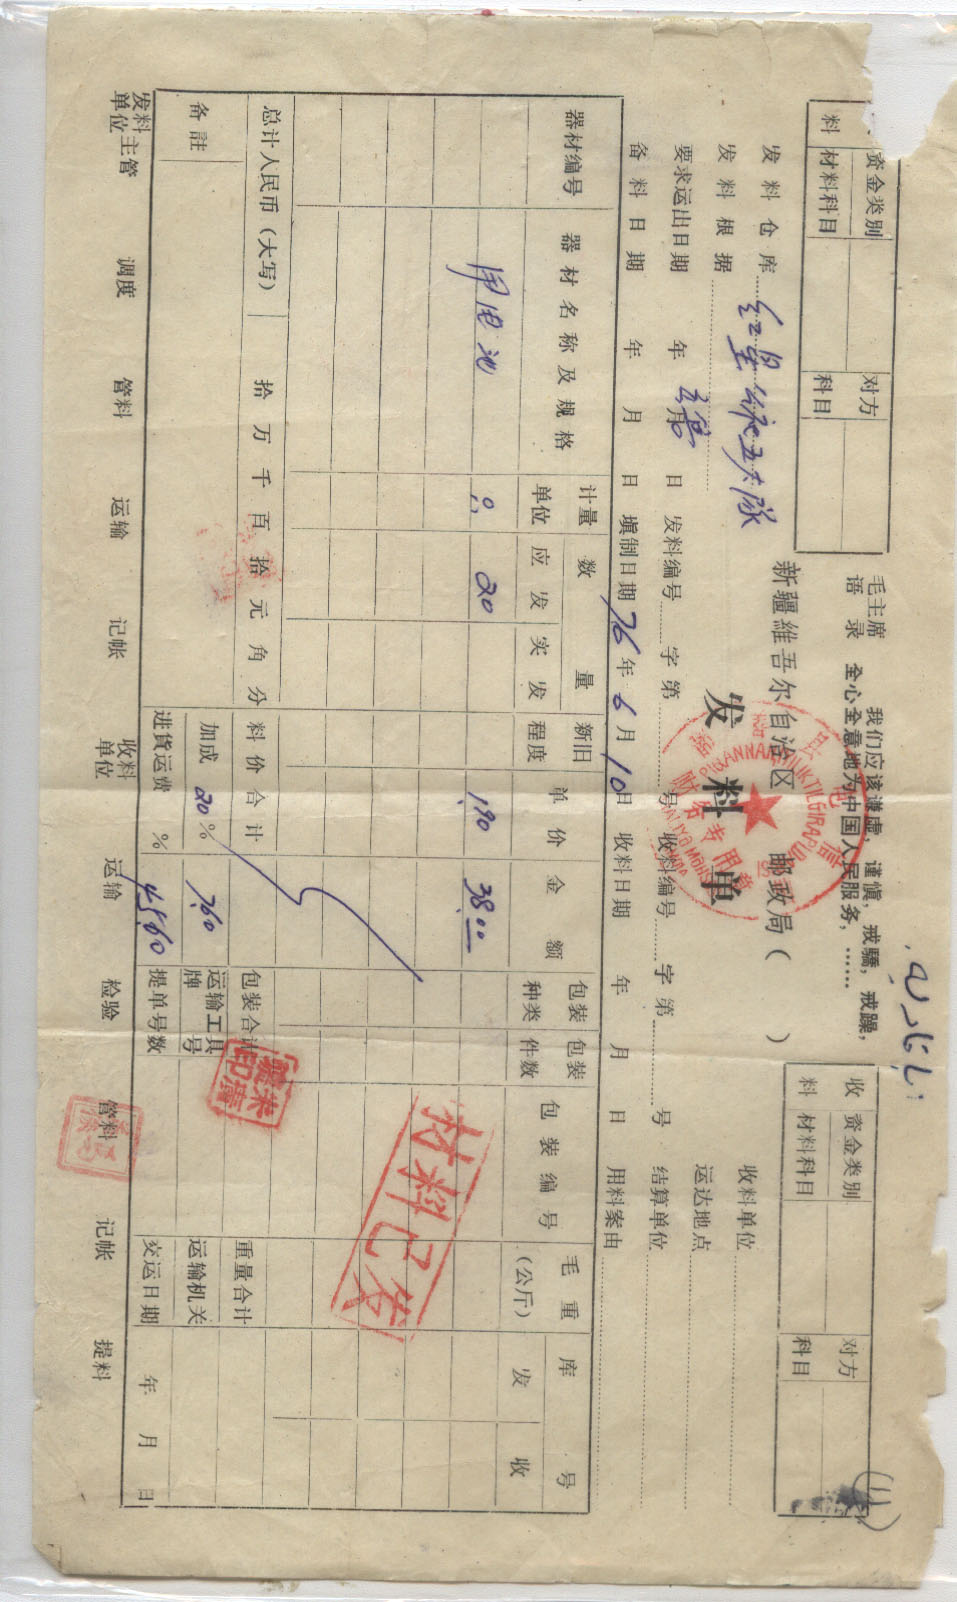 毛主席语录 我们应该谦虚,谨慎,戒骄,戒躁,
全心全意地为中国人民服务,……
资金类别 对方科目
料 材料科目
收料 资金类别 对方科目
材料科目
新疆維吾尔自治区 邮政局( )
发料单
发料仓库 红星公社五大隊
发料根据
要求运出日期 年 月 日 发料编号 字第 号 收料编号 字第 号
备料日期 年 月 日 填制日期 76年6月10日 收料日期 年 月 日
收料单位
运达地点
结算单位
用料案由
器材编号 器材名称及规格 计量单位 数量 应发 实发 新旧程度 单价 金额 包装种类 包装件数 包装编号 毛重(公斤) 库号 发 收
甲电池 20 1.90 38.00
材料已发
总计人民币(大写) 拾万千百拾元角分 料价合计 包装合计 重量合计
备註 加成 20% 7.60 运输工具牌号 运输机关
进货运费 % 45.60 提单号数 交运日期 年 月 日
发料单位 主管 调度 管料 运输 记帐 收料单位 运输 检验 管料 记帐 提料
财务专用章